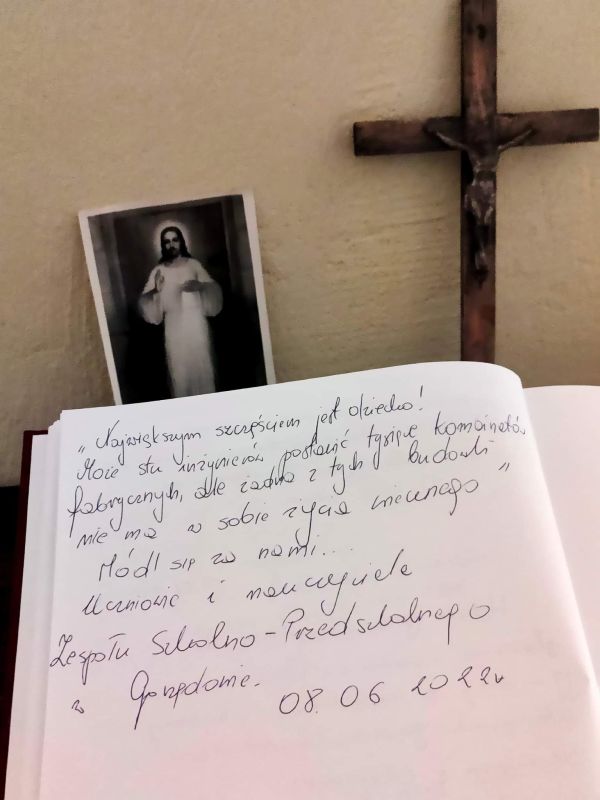 „Największym szczęściem jest dziecko!
Może stu inżynierów postawić tysiące kombinatów
fabrycznych, ale żadna z tych budowli
nie ma w sobie życia wiecznego"
Módl się za nami...
Uczniowie i nauczyciele
Zespołu Szkolno-Przedszkolnego
w
08.06 2022r